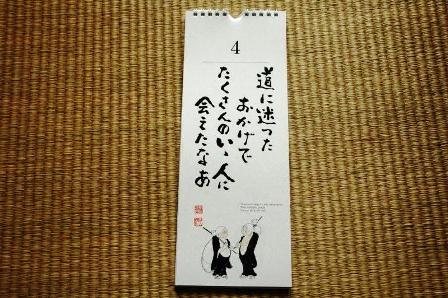 4
道に迷った
おかげで
たくさんのいゝ人に
会えたなあ